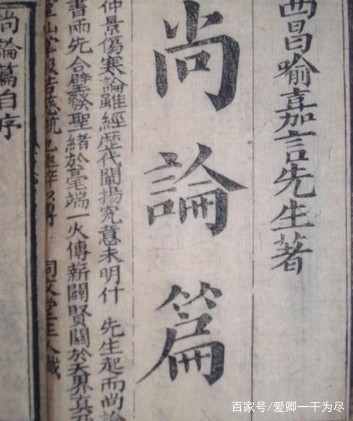 西昌喻嘉言先生著
尚論篇
仲景傷寒論雖經歷代闡揚究意未明什 先生起而尚論
書兩先合璧發聖緒於毫端一火傳薪闢賢關於天界真
同文堂主人識
尚論篇自序
百家号/爱卿一干为尽